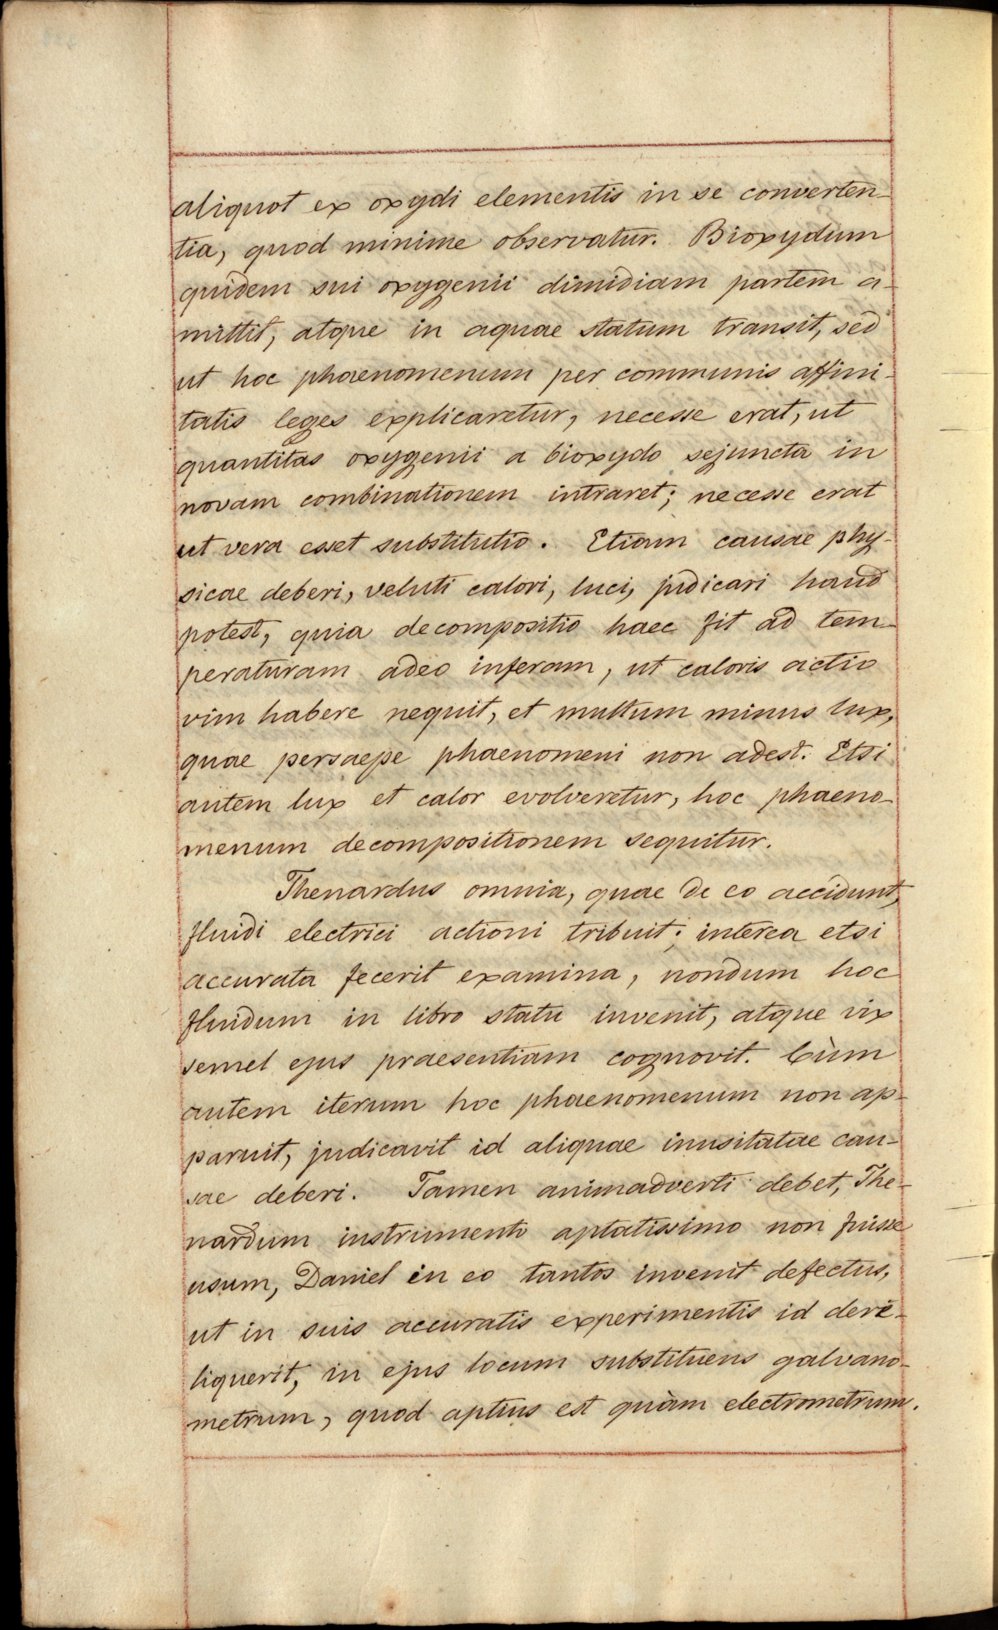 aliquot ex oxydi elementis in se converten-
tia, quod minime observatur. Bioxydum
quidem sui oxygenii dimidiam partem a-
mittit, atque in aquae statum transit, sed
ut hoc phaenomenum per communis affini-
tatis leges explicaretur, necesse erat, ut
quantitas oxygenii a bioxydo sejuncta in
novam combinationem intraret; necesse erat
ut vera esset substitutio. Etiam causae phy-
sicae deberi, veluti calori, luci, judicari haud
potest, quia decompositio haec fit ad tem-
peraturam adeo inferam, ut caloris actio
vim habere nequit, et multum minus lux,
quae persaepe phaenomeni non adest. Etsi
autem lux et calor evolveretur, hoc phaeno-
menum decompositionem sequitur.
Thenardus omnia, quae de eo accidunt,
fluidi electrici actioni tribuit; interea etsi
accurata fecerit examina, nondum hoc
fluidum in libro statu invenit, atque vix
semel ejus praesentiam cognovit. Cùm
autem iterum hoc phaenomenum non ap-
paruit, judicavit id aliquae inusitatae cau-
sae deberi. Tamen animadverti debet, The-
nardum instrumento aptatissimo non fuisse
usum, Daniel in eo tantos invenit defectus,
ut in suis accuratis experimentis id dere-
liquerit, in ejus locum substituens galvano-
metrum, quod aptius est quàm electrometrum.